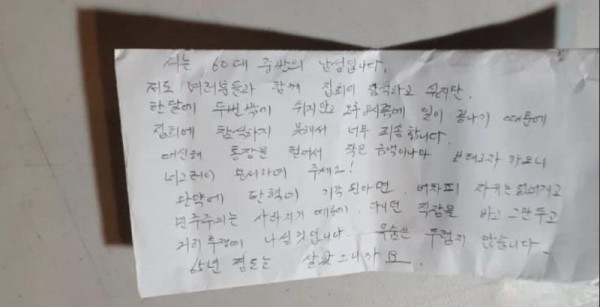 저는 60대 중반의 남성입니다.
저도 여러분들과 함께 집회에 참석하고 싶지만
한달에 두번밖에 쉬지않고 오후 8시쯤에 일이 끝나기 때문에
집회에 참석하지 못해서 너무 죄송합니다.
대신해 통장을 털어서 작은 금액이나마 보태고자 하오니
너그러이 용서하여 주세요!
만약에 탄핵이 기각 된다면, 어차피 자유는 없어지고
민주주의는 사라지기 때문에, 다니던 직장을 바로 그만두고
거리 투쟁에 나설것입니다. 죽음은 두렵지 않습니다
65년 정도는 살았으니까요.